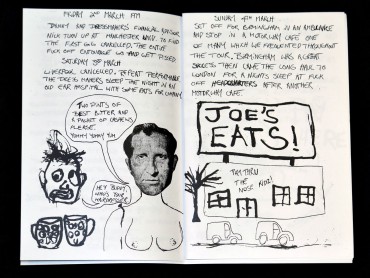 FRIDAY 2nd MARCH PM
DENNY AND DRESSMAKERS FINANCIAL ADVISOR
NICK TURN UP AT MANCHESTER UNIV. TO FIND
THE FIRST GIG CANCELLED. THE ENTIRE
FUCK OFF ENTOURAGE GO AND GET PISSED
SATURDAY 3rd MARCH
LIVERPOOL CANCELLED. REPEAT PERFORMANCE
THE DRESSMAKERS SLEEP THE NIGHT IN AN
OLD EAR HOSPITAL WITH SOME EATS FOR COMPANY
TWO PINTS OF
BEST BITTER AND
A PACKET OF CASHEWS
PLEASE.
YUMMY YUMMY YUM
HEY BUDDY,
WHO'S YOUR
DRESSMAKER?
SUNDAY 4th MARCH
SET OFF FOR BIRMINGHAM IN AN AMBULANCE
AND STOP IN A MOTORWAY CAFE ONE
OF MANY WHICH WE FREQUENTED THROUGHOUT
THE TOUR. BIRMINGHAM WAS A GREAT
THEN CAME THE LONG HAUL TO
LONDON FOR A NIGHTS SLEEP AT FUCK
OFF HEADQUARTERS AFTER ANOTHER
MOTORWAY CAFE.
JOE'S
EATS!
PAY THRU
THE
NOSE KIDZ!